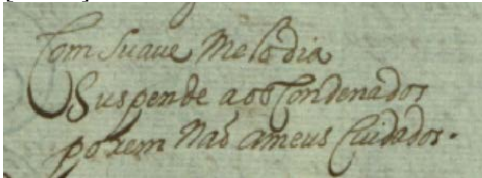 Com suave Melodia
Suspende aos Condenados
porem Naõ ameus Cuidados.